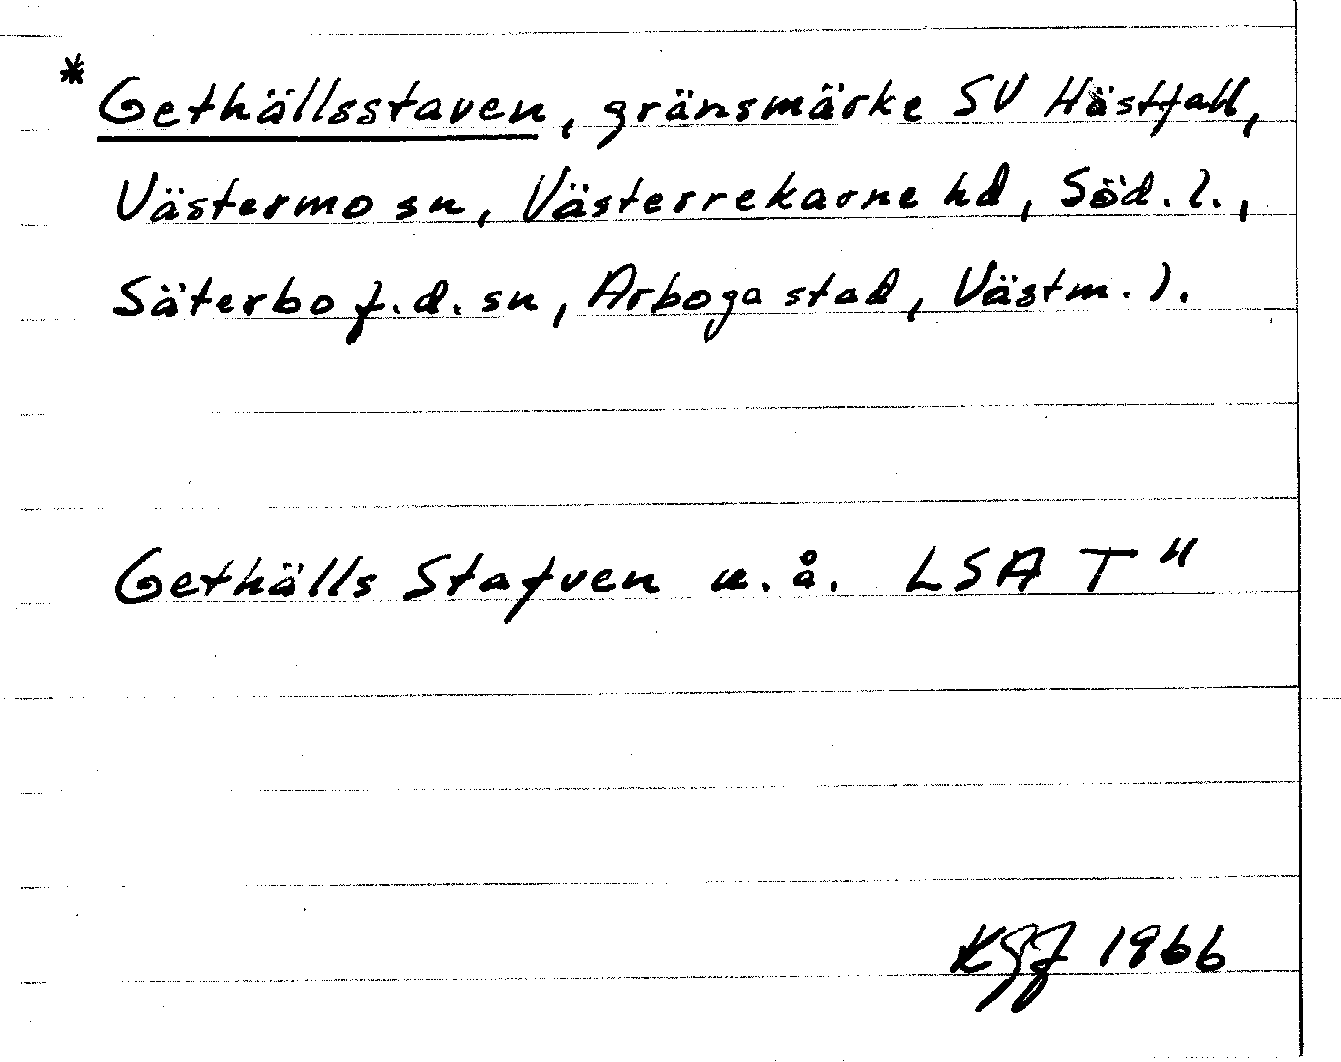 * Gethällsstaven, gränsmärke SV Hästfall,
Västermo sn, Västerrekarne hd, Söd. l.,
Säterbo f.d. sn, Arboga stad, Västm. l.
Gethälls Stafven u. å. LSA T"
1966